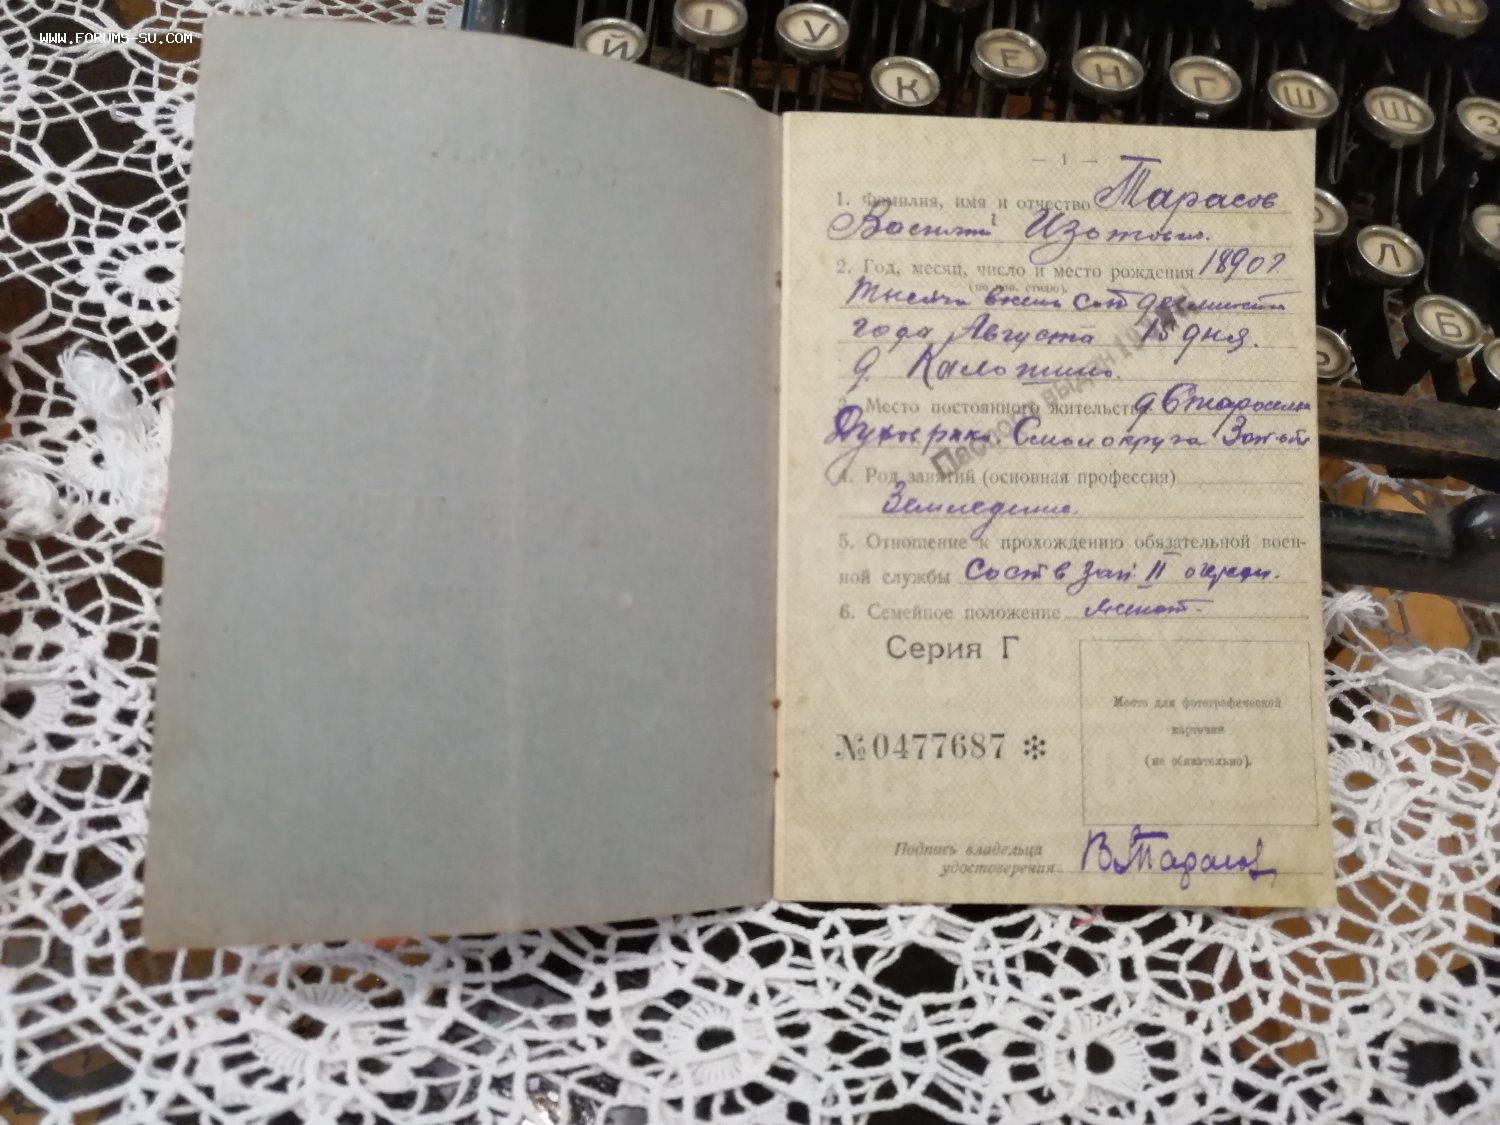 WWW.FORUMS-SU.COM
Й І У К Е Н Г Ш Щ З
Л
Б
— 1 —
1. Фамилия, имя и отчество Тарасов
Василий Изотович.
2. Год, месяц, число и место рождения 1890 г
(по нов. стилю).
тысяча восемь сот девяносто
года Августа 15 дня.
д.
3. Место постоянного жительства д. Староселье
Духов района. Смол округа Зап обл
Паспорт выдан 193
4. Род занятий (основная профессия)
Земледелие.
5. Отношение к прохождению обязательной воен-
ной службы Сост в зап II очереди.
6. Семейное положение женат.
Серия Г
№ 0477687 ✻
Место для фотографической
карточки
(не обязательно).
Подпись владельца
удостоверения В. Тарасов